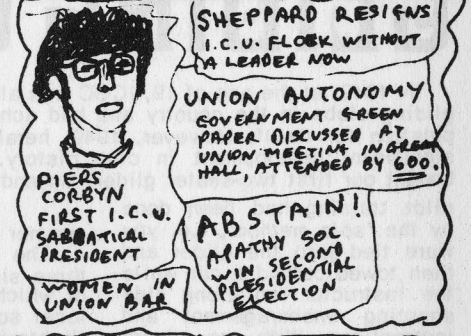 SHEPPARD RESIGNS
I.C.U. FLOCK WITHOUT
A LEADER NOW
UNION AUTONOMY
GOVERNMENT GREEN
PAPER DISCUSSED AT
UNION MEETING IN GREAT
HALL, ATTENDED BY 600.
PIERS
CORBYN
FIRST I.C.U.
SABBATICAL
PRESIDENT
WOMEN IN
UNION BAR
ABSTAIN!
APATHY SOC
WIN SECOND
PRESIDENTIAL
ELECTION